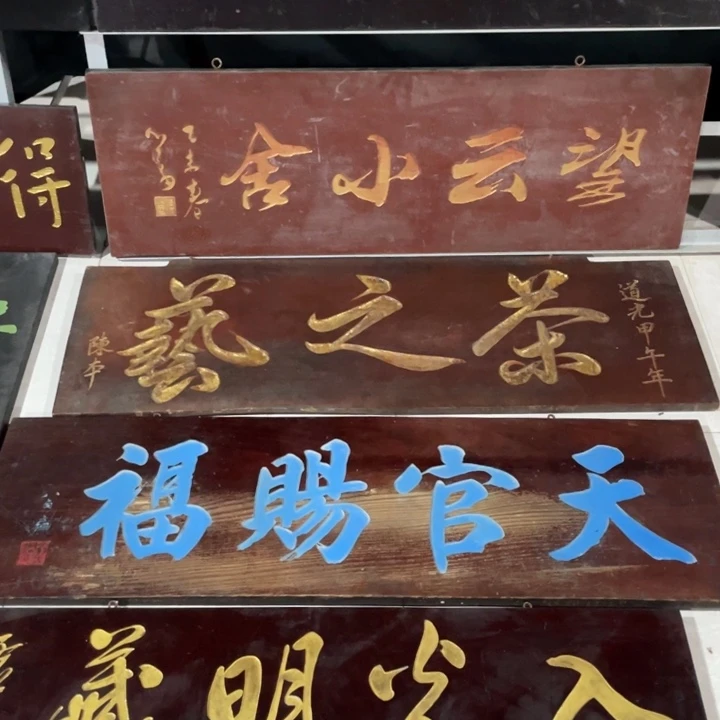 望云小舍
乙未春
得
道光甲午年
茶之藝
陳平
天官賜福
入光明藏